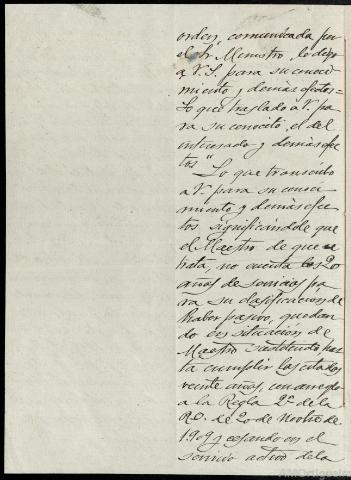 orden, comunicada por
el Sr Ministro, lo digo
a V. S. para su conoci-
miento y demás efectos =
Lo que traslado a V. pa
ra su conocito, el del
interesado y demás efec
tos"
Lo que transcribo
a V. para su conoci
miento y demás efec
tos significándole que
el Maestro de que se
trata, no cuenta los 20
años de servicios pa
ra su clasificación de
haber pasivo, quedan
do en situación de
Maestro sustituido, has
ta cumplir los citados
veinte años, con arreglo
a la Regla 2ª de la
R.O. de 20 de Novbre de
1909 y cesando en el
servicio activo de la